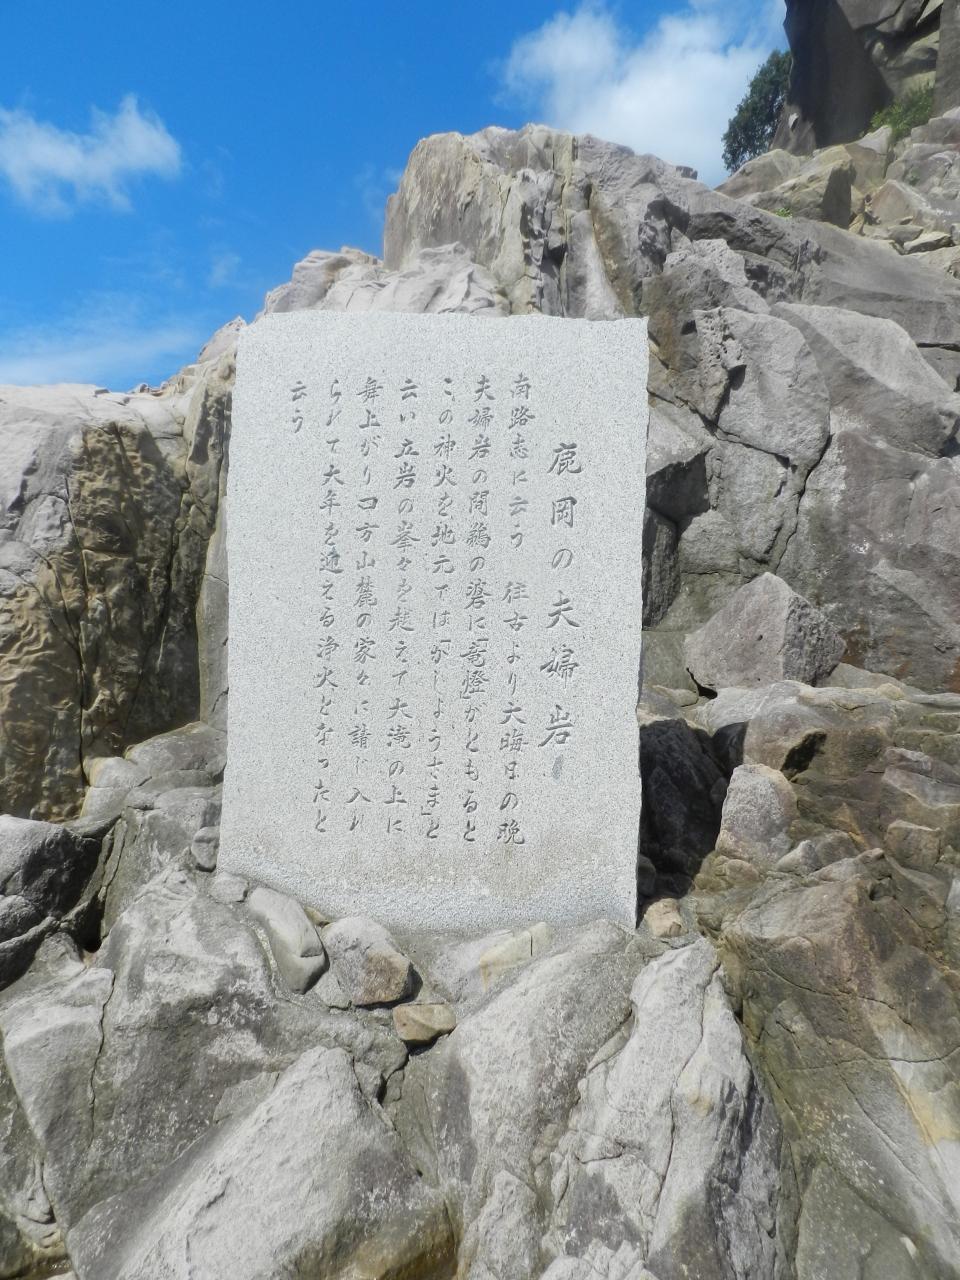 鹿岡の夫婦岩
南路志に云う　往古より大晦日の晩
夫婦岩の間鵜の碆に「竜燈」がともると
この神火を地元では「がしょうさま」と
云い立岩の峯々を越えて大滝の上に
舞上がり口方山麓の家々に請じ入れ
られて大年を迎える浄火となったと
云う